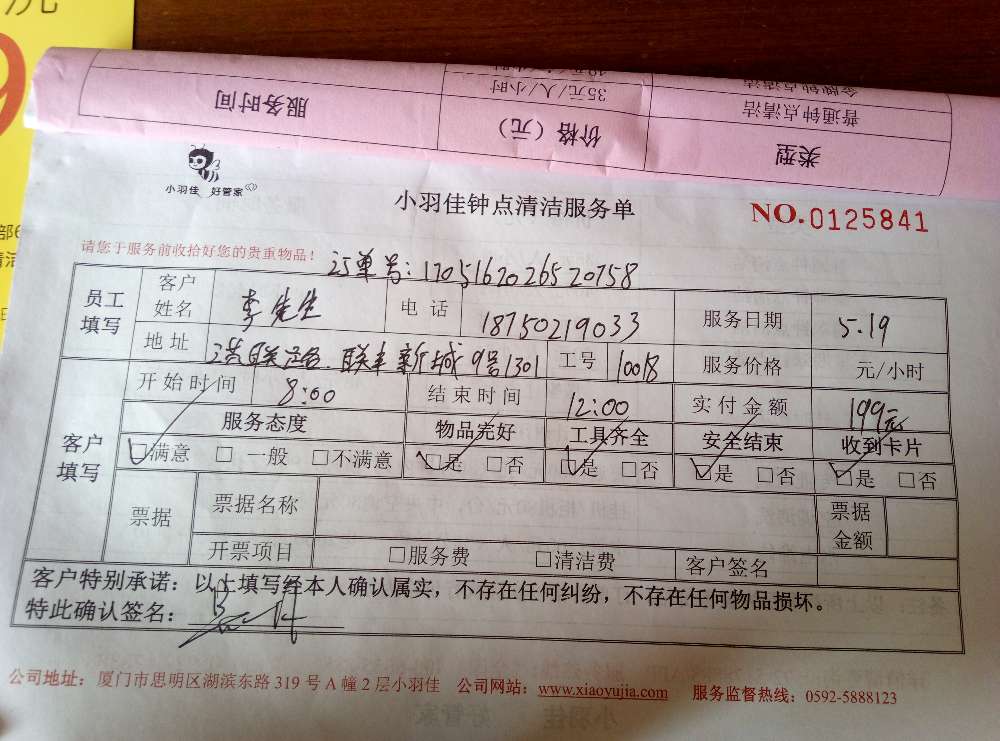 元
9
部6
服务时间 价格（元） 类型
35元/人/小时 普通钟点清洁
金牌钟点清洁
小羽佳 好管家
小羽佳钟点清洁服务单
NO.0125841
请您于服务前收拾好您的贵重物品！
订单号：1705162026520758
员工填写 客户姓名 李先生 电话 18750219033 服务日期 5.19
地址 联丰新城9号1301 工号 10018 服务价格 元/小时
客户填写 开始时间 8:00 结束时间 12:00 实付金额 199元
服务态度 物品完好 工具齐全 安全结束 收到卡片
☑满意 □一般 □不满意 ☑是 □否 ☑是 □否 ☑是 □否 ☑是 □否
票据 票据名称 票据金额
开票项目 □服务费 □清洁费 客户签名
客户特别承诺：以上填写经本人确认属实，不存在任何纠纷，不存在任何物品损坏。
特此确认签名：
公司地址：厦门市思明区湖滨东路 319 号 A 幢 2 层小羽佳 公司网站：www.xiaoyujia.com 服务监督热线：0592-5888123